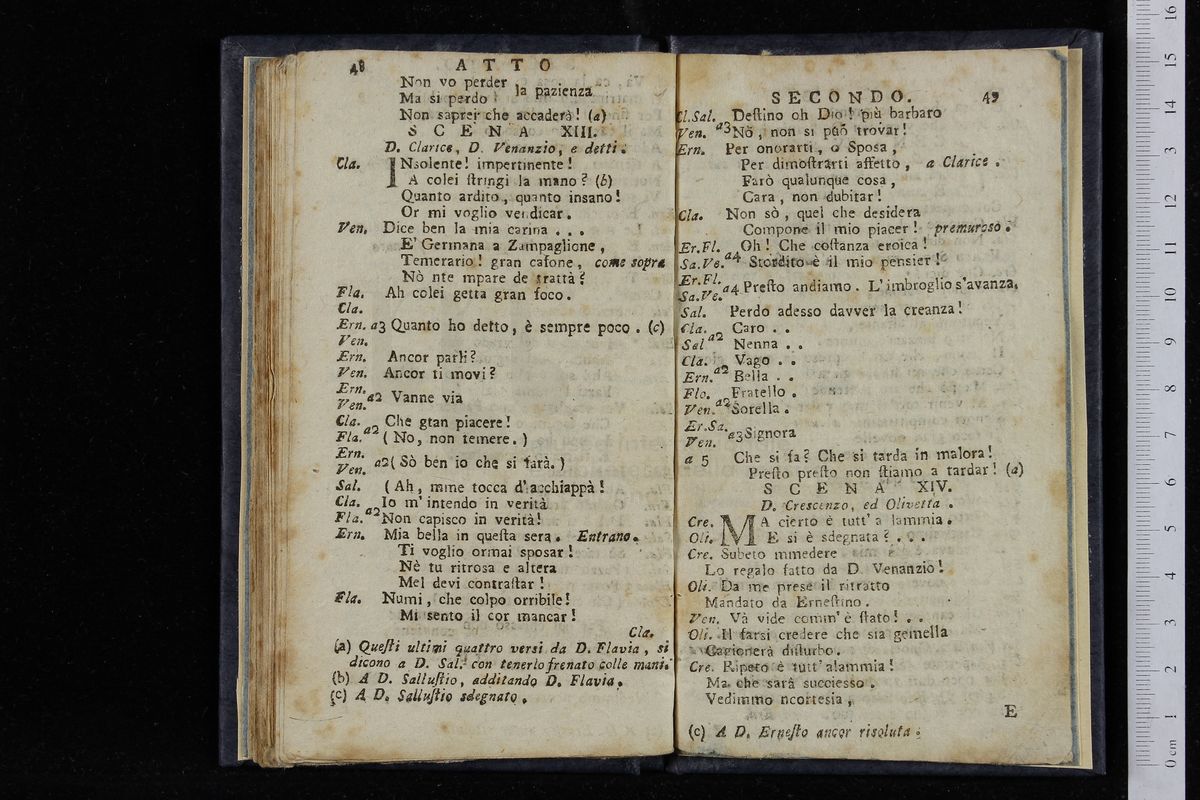 48 ATTO
Non vo perder
Ma si perdo la pazienza
Non saprei che accaderà! (a)
SCENA XIII.
D. Clarice, D. Venanzio, e detti.
Cla. INsolente! impertinente!
A colei ſtringi la mano? (b)
Quanto ardito, quanto insano!
Or mi voglio vendicar.
Ven. Dice ben la mia carina ...
E' Germana a Zampaglione,
Temerario! gran cafone, come sopra
Nò nte mpare de tratta?
Fla. Ah colei getta gran foco.
Cla.
Ern. a3 Quanto ho detto, è sempre poco. (c)
Ven.
Ern. Ancor parli?
Ven. Ancor ti movi?
Ern.
Ven. a2 Vanne via
Cla. Che gtan piacere!
Fla. a2 (No, non temere.)
Ern.
Ven. a2 (Sò ben io che si farà.)
Sal. (Ah, mme tocca d'acchiappà!
Cla. Io m'intendo in verità
Fla. a2 Non capisco in verità!
Ern. Mia bella in queſta sera. Entrano.
Ti voglio ormai sposar!
Nè tu ritrosa e altera
Mel devi contraſtar!
Fla. Numi, che colpo orribile!
Mi sento il cor mancar!
Cla.
(a) Queſti ultimi quattro versi da D. Flavia, si
dicono a D. Sal. con tenerlo frenato colle mani.
(b) A D. Salluſtio, additando D. Flavia.
(c) A D. Salluſtio sdegnato.
SECONDO. 49
Cl.Sal. Deſtino oh Dio! più barbaro
Ven. a3 Nò, non si può trovar!
Ern. Per onorarti, o Sposa,
Per dimoſtrarti affetto, a Clarice.
Farò qualunque cosa,
Cara, non dubitar!
Cla. Non sò, quel che desidera
Compone il mio piacer! premuroso.
Er.Fl. Oh! Che coſtanza eroica!
Sa.Ve. a4 Stordito è il mio pensier!
Er.Fl.
Sa.Ve. a4 Preſto andiamo. L'imbroglio s'avanza.
Sal. Perdo adesso davver la creanza!
Cla. Caro ..
Sal a2 Nenna ..
Cla. Vago ..
Ern. a2 Bella ..
Flo. Fratello.
Ven. a2 Sorella.
Er.Sa.
Ven. a3 Signora
a 5 Che si fa? Che si tarda in malora!
Preſto preſto non ſtiamo a tardar! (a)
SCENA XIV.
D. Crescenzo, ed Olivetta.
Cre. MA cierto è tutt'a lammia.
Oli. E si è sdegnata? ...
Cre. Subeto mmedere
Lo regalo fatto da D. Venanzio!
Oli. Da me prese il ritratto
Mandato da Erneſtino.
Ven. Và vide comm'è ſtato! ..
Oli. Il farsi credere che sia gemella
Cagionerà diſturbo.
Cre. Ripeto è tutt'alammia!
Ma che sarà succiesso.
Vedimmo ncortesia,
E
(c) A D. Erneſto ancor risoluta.